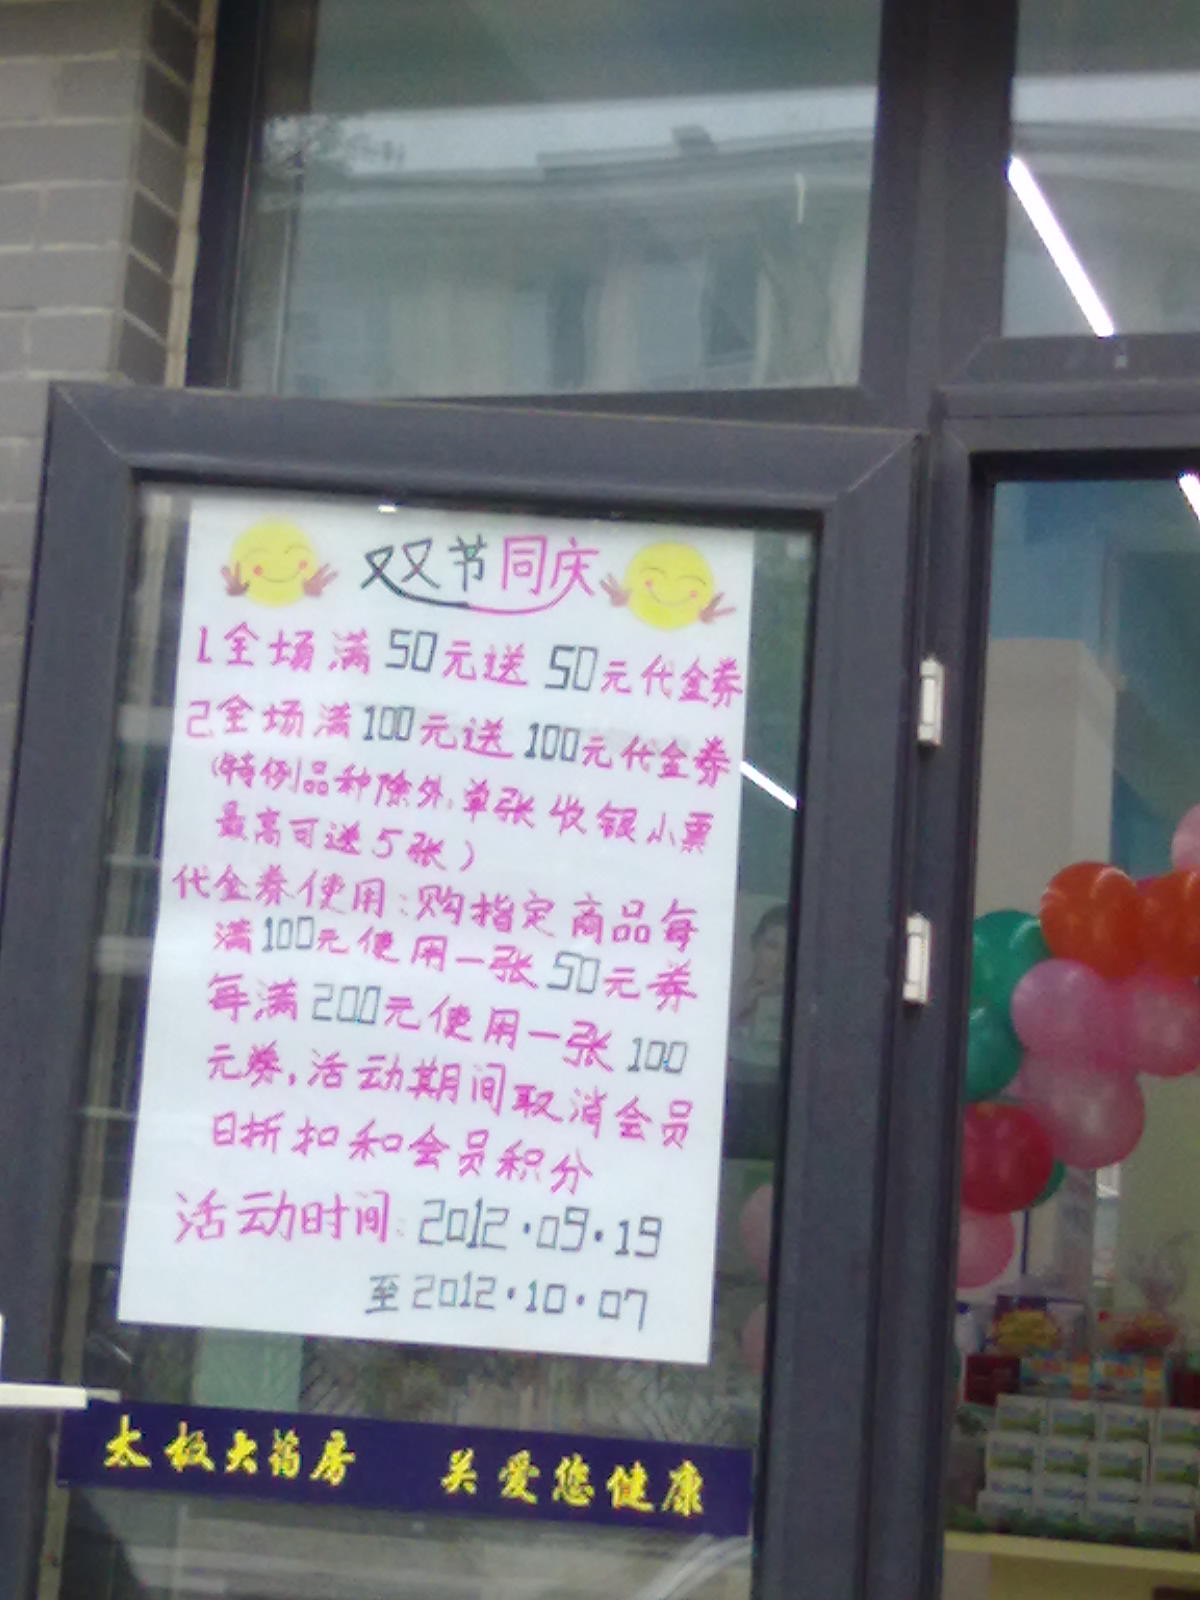 双双节同庆
1全场满50元送50元代金券
2全场满100元送100元代金券
(特例品种除外,单张收银小票
最高可送5张)
代金券使用:购指定商品每
满100元使用一张50元券
每满200元使用一张100
元券,活动期间取消会员
日折扣和会员积分
活动时间:2012·09·19
至2012·10·07
太极大药房 关爱您健康